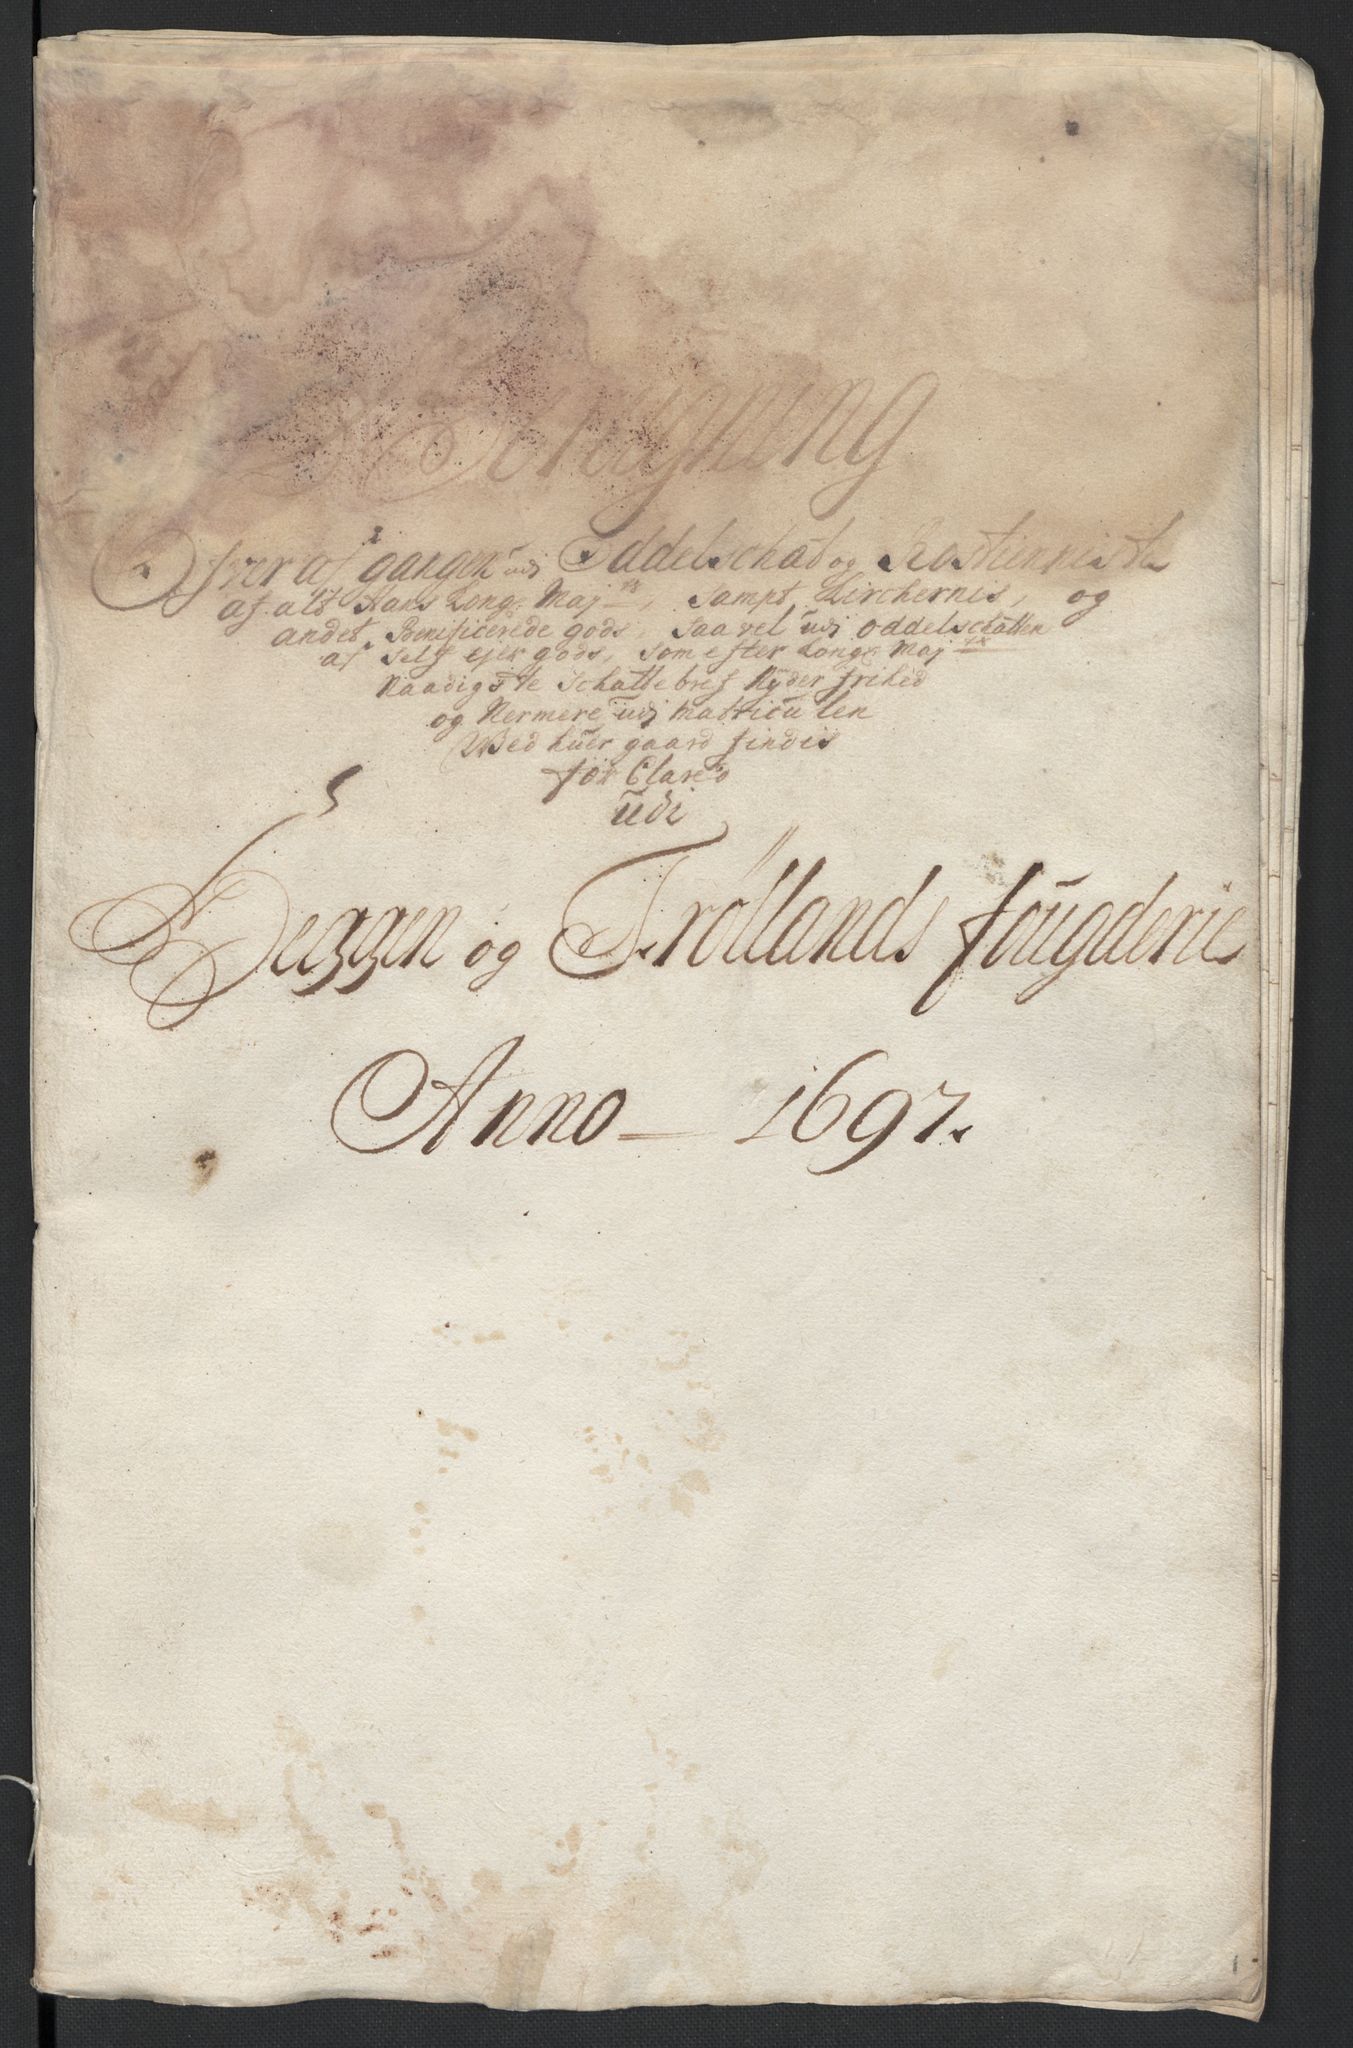 Beregning
Ofver afgangen udj Oddelschat og Rostienniste
af alt Hans Kong: Maj:ts, Sampt Kirchernis, og
andet Benificerede gods, Saavel udj oddelschatten
af Self ejer gods, som efter Kong: Maj:ts
Naadigste Schattebref Nyder frihed
og Nermere udj matriculen
Wed huer gaard findis
for Clare'o
udi
Heggen og Frøllands fougderie
Anno – 1697.
1